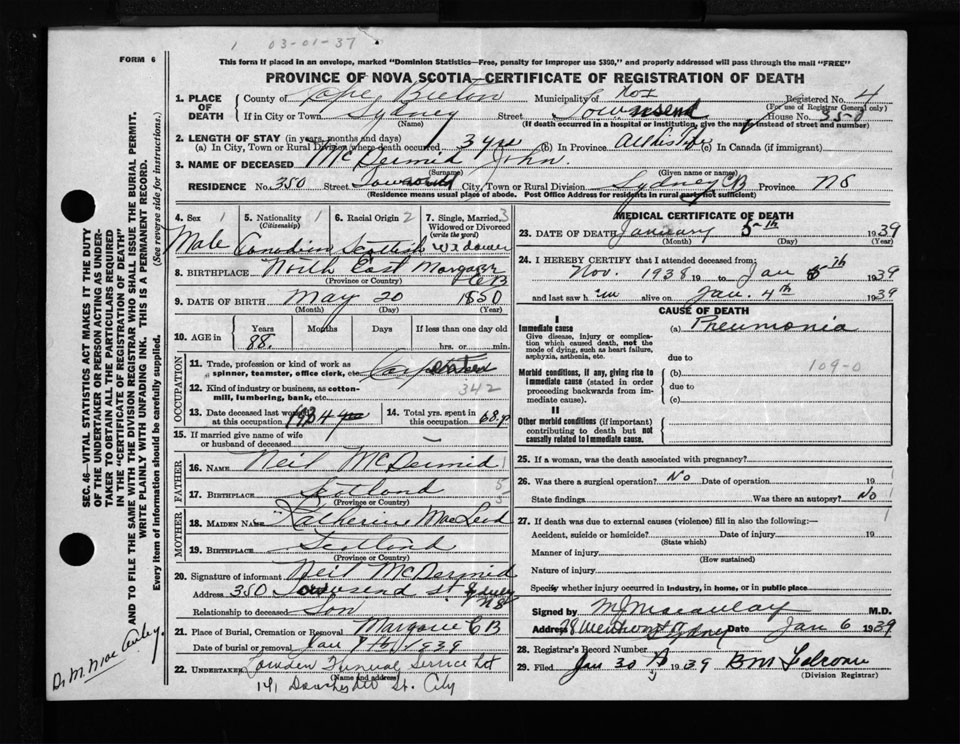 1 03-01-37
FORM 6
This form if placed in an envelope, marked "Dominion Statistics—Free, penalty for improper use $300," and properly addressed will pass through the mail "FREE"
PROVINCE OF NOVA SCOTIA—CERTIFICATE OF REGISTRATION OF DEATH
1. PLACE OF DEATH
County of Cape Breton Municipality of Registered No. 4
(For use of Registrar General only)
If in City or Town Sydney Street Townsend House No. 350
(Name) (If death occurred in a hospital or institution, give the name instead of street and number)
2. LENGTH OF STAY (in years, months and days)
(a) In City, Town or Rural Division where death occurred 3 yrs (b) In Province All his life (c) In Canada (if immigrant)
3. NAME OF DECEASED McDermid John
(Surname) (Given name or names)
RESIDENCE No. 350 Street Townsend City, Town or Rural Division Sydney CB Province NS
(Residence means usual place of abode. Post Office Address for residents in rural parts not sufficient)
4. Sex 1
Male
5. Nationality 1
(Citizenship)
Canadian
6. Racial Origin 2
Scottish
7. Single, Married, 3
Widowed or Divorced
(write the word)
Widower
8. BIRTHPLACE North East Margaree
CB
(Province or Country)
9. DATE OF BIRTH May 20 1850
(Month) (Day) (Year)
10. AGE in
Years Months Days If less than one day old
88 hrs. or min.
OCCUPATION
11. Trade, profession or kind of work as
spinner, teamster, office clerk, etc. Carpenter
12. Kind of industry or business, as cotton-
mill, lumbering, bank, etc. 342
13. Date deceased last worked
at this occupation
14. Total yrs. spent in
this occupation 68 y
15. If married give name of wife
or husband of deceased —
FATHER
16. Name Neil McDermid
17. Birthplace Scotland
(Province or Country)
MOTHER
18. Maiden Name Katherine MacLeod
19. Birthplace Scotland
(Province or Country)
20. Signature of informant Neil McDermid
Address 350 Townsend St Sydney
NS
Relationship to deceased Son
21. Place of Burial, Cremation or Removal Margaree CB
Date of burial or removal Jan 7th 1939
22. UNDERTAKER Funeral Service Lt
(Name and address)
141 Dorchester St. City
MEDICAL CERTIFICATE OF DEATH
23. DATE OF DEATH January 5th 1939
(Month) (Day) (Year)
24. I HEREBY CERTIFY that I attended deceased from:
Nov. 1938 19 to Jan 5th 1939
and last saw h im alive on Jan. 4th 1939
CAUSE OF DEATH
I
Immediate cause (a) Pneumonia
Give disease, injury or complica-
tion which caused death, not the
mode of dying, such as heart failure,
asphyxia, asthenia, etc. due to
109-0
Morbid conditions, if any, giving rise to (b)
immediate cause (stated in order due to
proceeding backwards from im-
mediate cause). (c)
II
Other morbid conditions (if important)
contributing to death but not
causally related to immediate cause.
25. If a woman, was the death associated with pregnancy?
26. Was there a surgical operation? No Date of operation 19
State findings Was there an autopsy? No
27. If death was due to external causes (violence) fill in also the following:—
Accident, suicide or homicide? Date of injury 19
(State which)
Manner of injury
(How sustained)
Nature of injury
Specify whether injury occurred in industry, in home, or in public place
Signed by M J Macaulay M.D.
Address 28 Wentworth St Sydney Date Jan 6 1939
28. Registrar's Record Number
29. Filed Jan 30 1939 Falconer
(Division Registrar)
SEC. 46—VITAL STATISTICS ACT MAKES IT THE DUTY
OF THE UNDERTAKER OR PERSON ACTING AS UNDER-
TAKER TO OBTAIN ALL THE PARTICULARS REQUIRED
IN THE "CERTIFICATE OF REGISTRATION OF DEATH"
AND TO FILE THE SAME WITH THE DIVISION REGISTRAR WHO SHALL ISSUE THE BURIAL PERMIT.
WRITE PLAINLY WITH UNFADING INK. THIS IS A PERMANENT RECORD.
Every item of information should be carefully supplied. (See reverse side for instructions.)
Dr M. MacAuley.